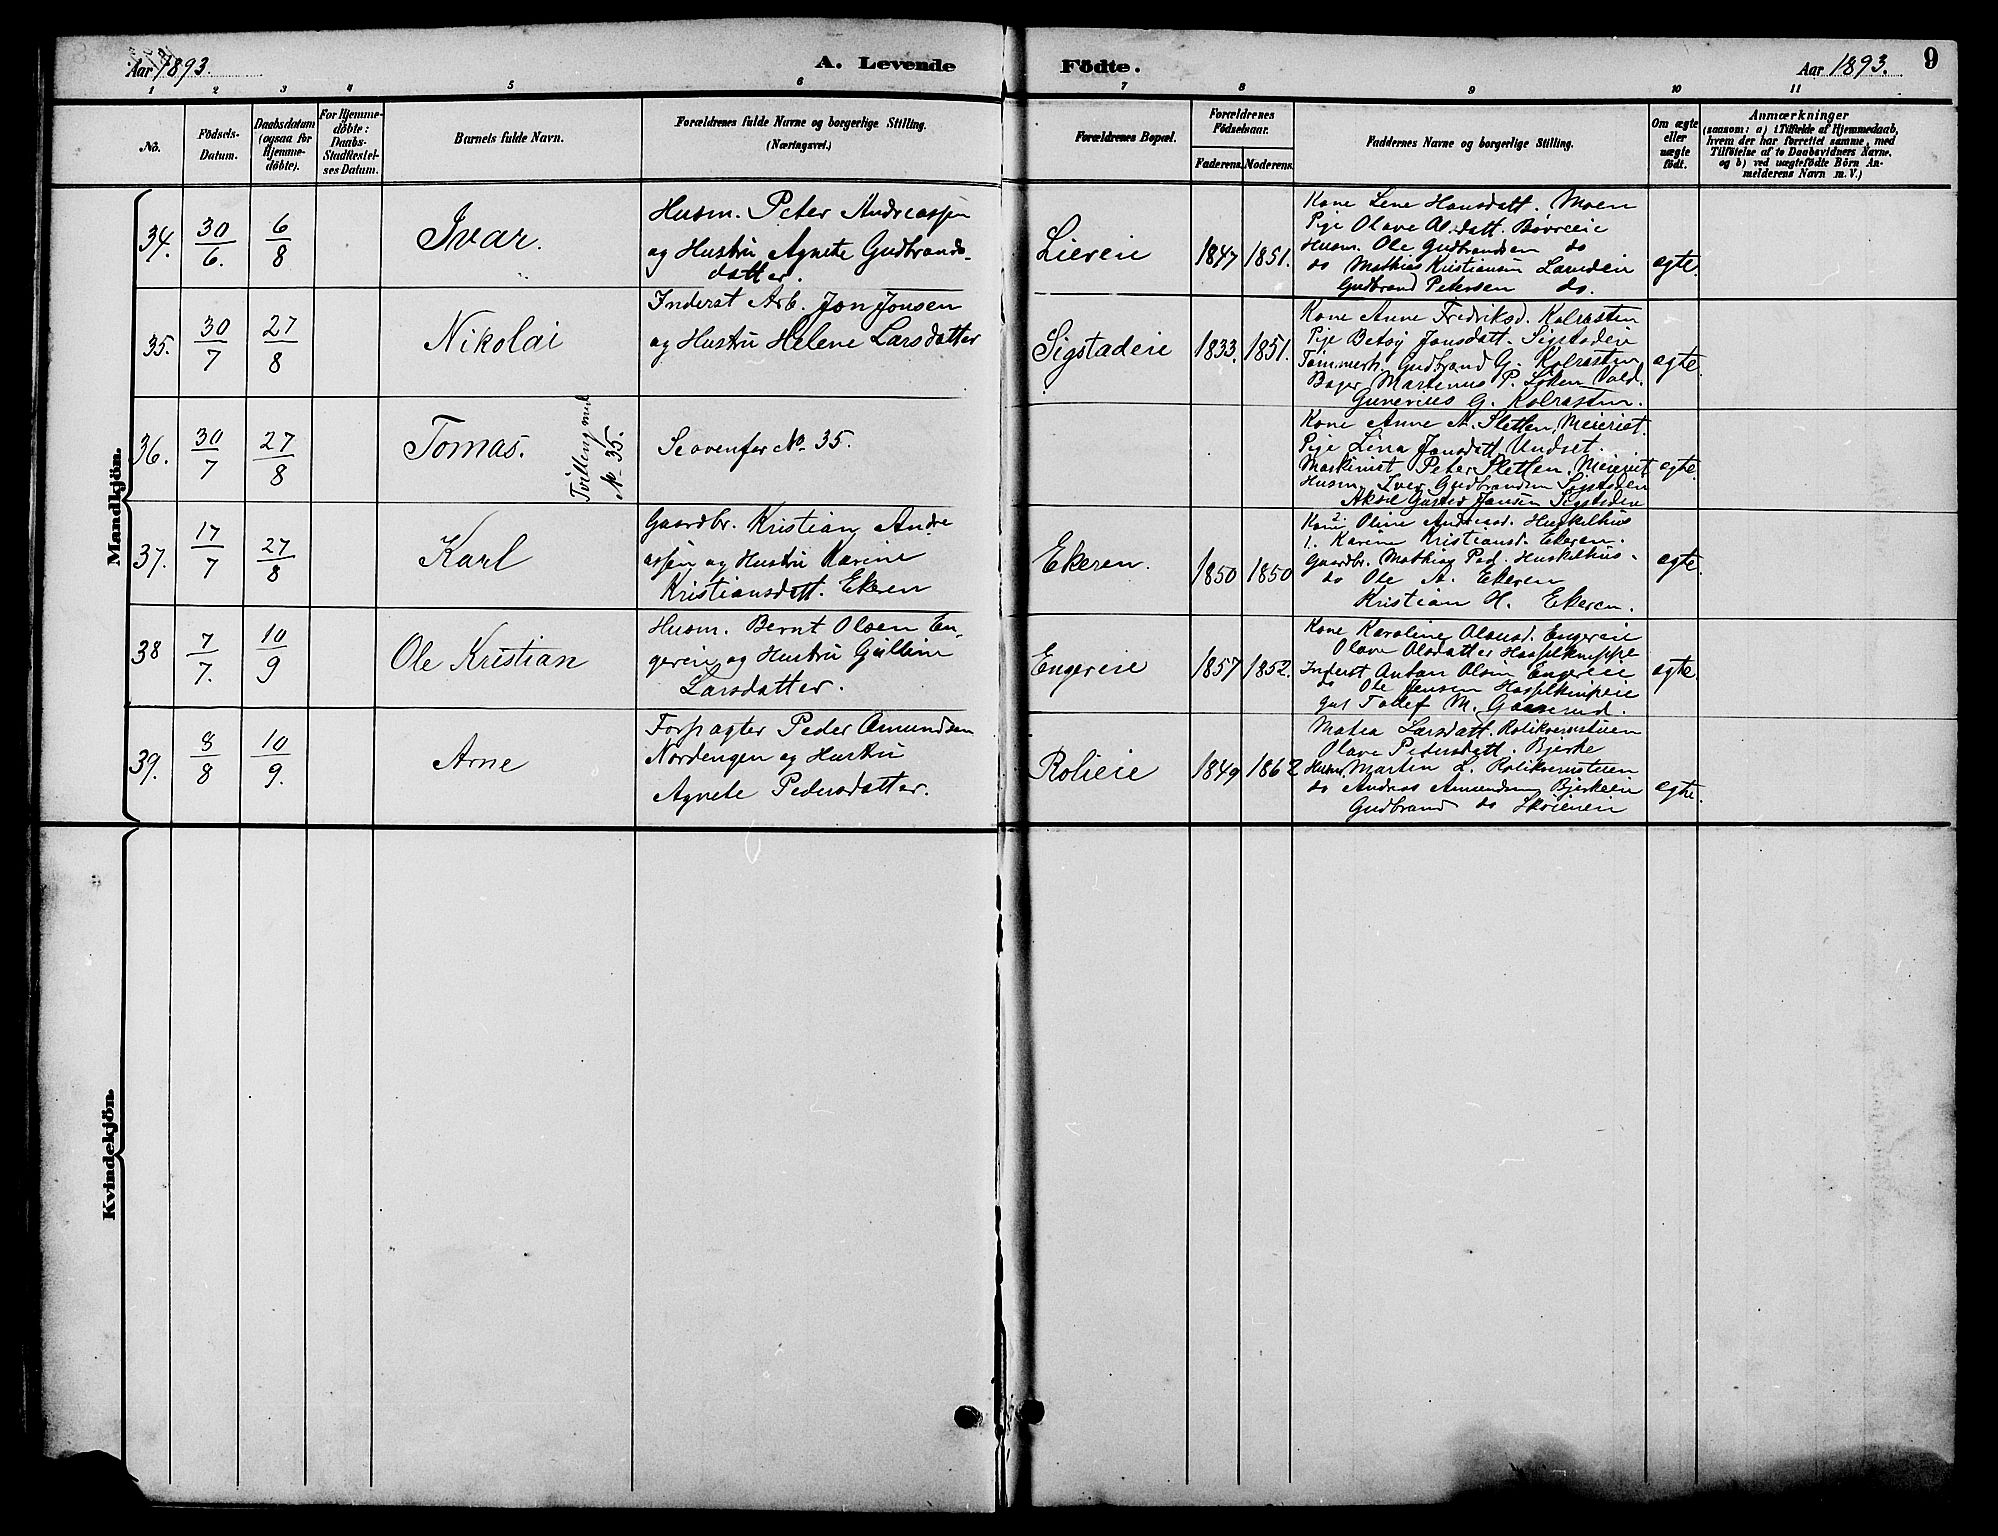 Aar 1893.
A. Levende
Födte.
Aar 1893.
9
1 2 3 4 5 6 7 8 9 10 11
No.
Födsels-
Datum.
Daabsdatum
(ogsaa for
Hjemme-
döbte).
For Hjemme-
döbte:
Daabs-
Stadfæstel-
ses Datum.
Barnets fulde Navn.
Forældrenes fulde Navne og borgerlige Stilling.
(Næringsvei.)
Forældrenes Bopæl.
Forældrenes
Födselsaar.
Faderens.
Moderens.
Faddernes Navne og borgerlige Stilling.
Om ægte
eller
uægte
födt.
Anmærkninger
(saasom: a) i Tilfælde af Hjemmedaab,
hvem der har forrettet samme, med
Tilföielse af to Daabsvidners Navne,
og b) ved uægtefödte Börn An-
melderens Navn m. V.)
Mandkjön.
34.
30/6.
6/8
Ivar.
Husm. Peter Andreassen
og Hustru Agnete Gudbrands-
datter.
Liereie
1847
1851.
Kone Lene Hansdatt. Moen
Pije Olave Ol.datt. Bövreeie
Husm. Ole Gudbrandsen do
do Mathias Kristiansen
Gudbrand Petersen do.
ægte.
35.
30/7
27/8
Nikolai
Inderst Arb. Jon Jonsen
og Hustru Helene Larsdatter
Sigstadeie
1833.
1851.
Kone Anne Fredriksd. Kolrasten
Pije Betsy Jonsdatt. Sigstadeie
Tömmerh. Gudbrand G. Kolrasten
Bager Martinus P. Löken Vold.
Gunerius G. Kolrasten.
ægte.
36.
30/7
27/8
Tomas.
Tvilling med
No 35.
Se ovenfor No. 35.
Kone Anne A. Sletten, Meieriet.
Pije Lina Jonsdatt. Undset.
Maskinist Peter Sletten, Meieriet
Husm. Iver Gudbrandsen Sigstadeie
Aksel Gustad Jansen Sigstadeie
ægte.
37.
17/7
27/8
Karl
Gaardbr. Kristian Andre
assen og Hustru Karine
Kristiansdatt. Ekeren
Ekeren.
1850
1850
Kone 2. Oline Andreasd. Huskelhus
1. Karine Kristiansd. Ekeren.
Gaardbr. Mathias Ped. Huskelhus.
do Ole A. Ekeren
Kristian H. Ekeren.
ægte.
38
7/7.
10/9
Ole Kristian
Husm. Bernt Olsen En-
gereie og Hustru Gulline
Larsdatter.
Engereie
1857
1852.
Kone Karoline Olausd. Engereie
Olave Olsdatter Hasselknippe
Inderst Anton Olsen Engereie
do Ole Jensen Hasselknipeie
M.
ægte
39.
8/8
10/9.
Arne
Forpagter Peder Amundsen
Nordengen og Hustru
Agnete Pedersdatter.
Rolieie
1849
1862
Matea Larsdatt.
Olave Pedersdatt. Bjerke
Husm. Martin L.
do Andreas Amundsen Bjerkeeie
Gudbrand do Skoienen
ægte.
Kvindekjön.